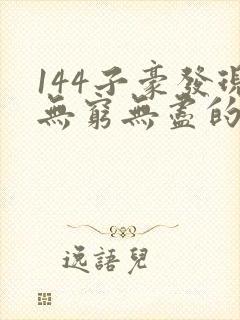 144子豪發現
無窮無盡的
逸語兒